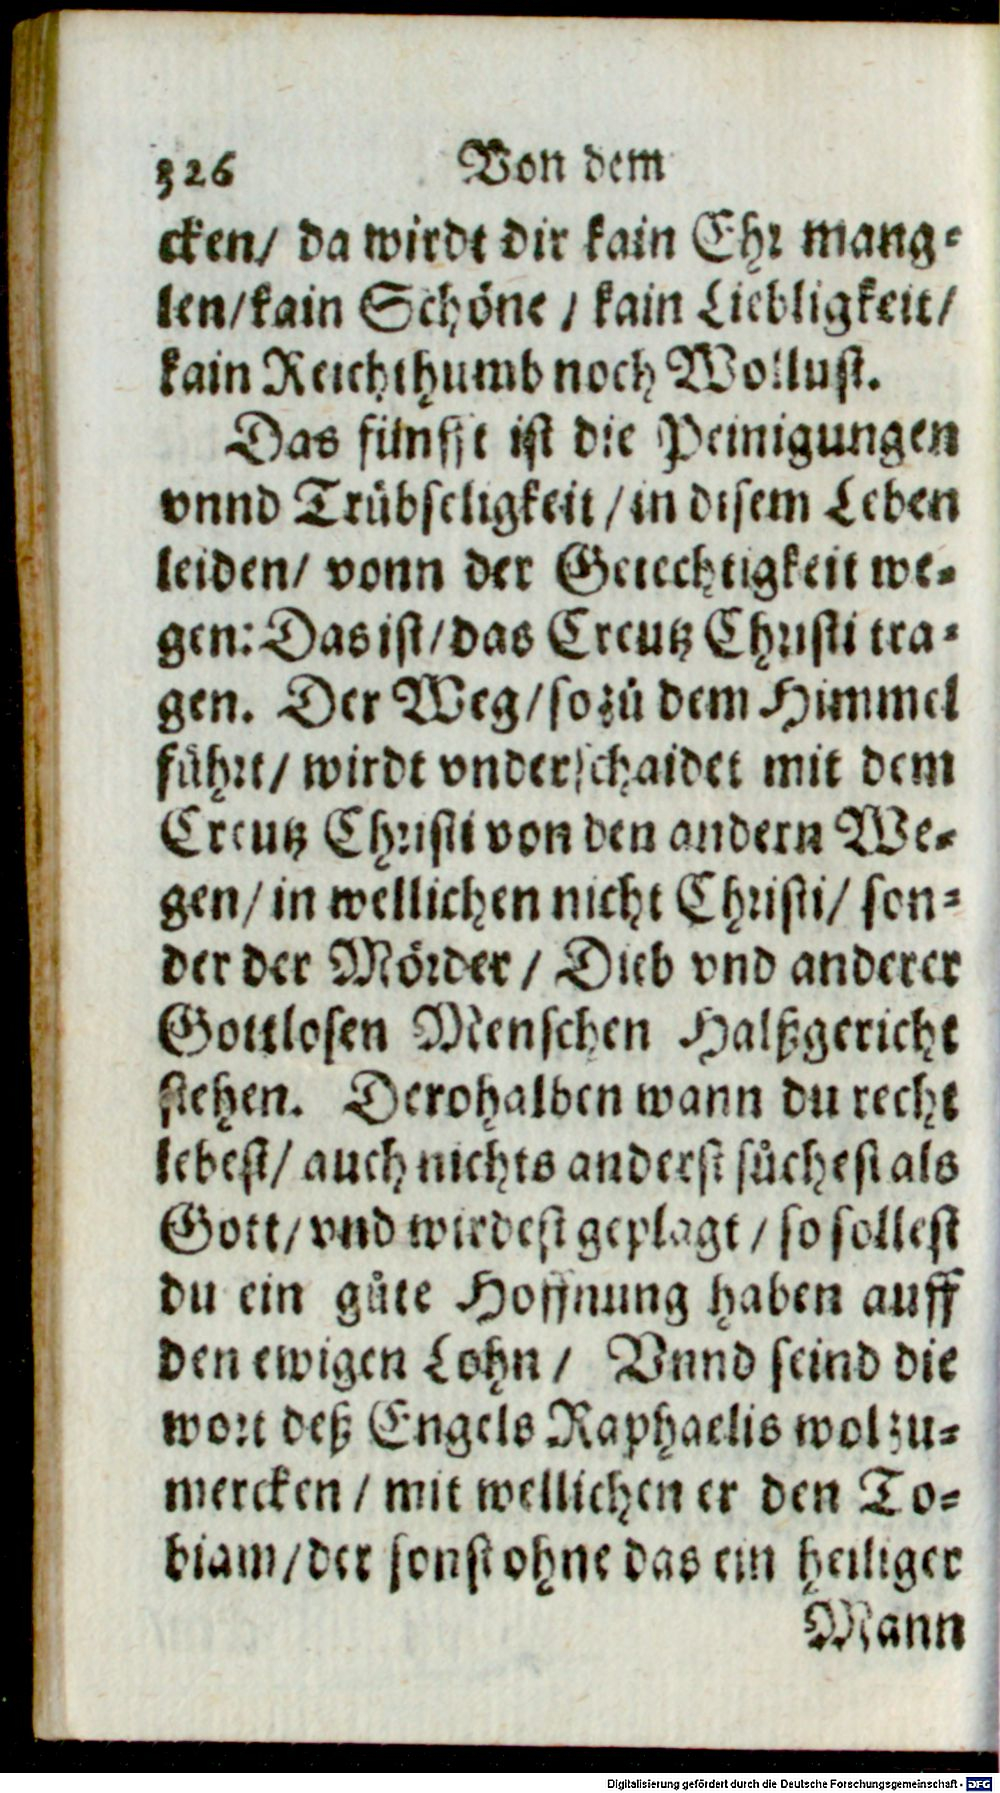 326 Von dem
cken/ da wirdt dir kain Ehr mang⸗
len/kain Schöne / kain Liebligkeit/
kain Reichthumb noch Wollust.
Das fünfft ist die Peinigungen
vnnd Trübseligkeit /in disem Leben
leiden/ vonn der Gerechtigkeit we⸗
gen: Das ist/das Creutz Christi tra⸗
gen. Der Weg/so zů dem Himmel
führt/ wirdt vnderschaidet mit dem
Creutz Christi von den andern We⸗
gen/ in wellichen nicht Christi/ son⸗
der der Mörder / Dieb vnd anderer
Gottlosen Menschen Halßgericht
stehen. Derohalben wann du recht
lebest/ auch nichts anderst sůchest als
Gott/ vnd wirdest geplagt / so sollest
du ein gůte Hoffnung haben auff
den ewigen Lohn / Vnnd seind die
wort deß Engels Raphaelis wol zu⸗
mercken / mit wellichen er den To⸗
biam/der sonst ohne das ein heiliger
Mann
Digitalisierung gefördert durch die Deutsche Forschungsgemeinschaft - DFG